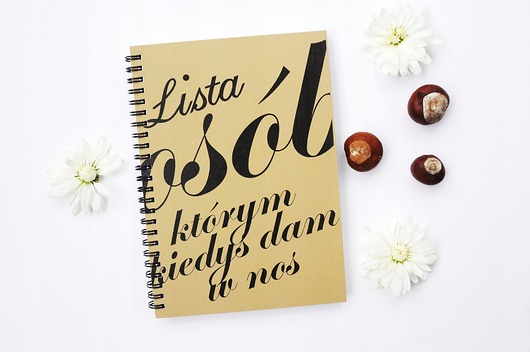 Lista
osób
którym
kiedyś dam
w nos